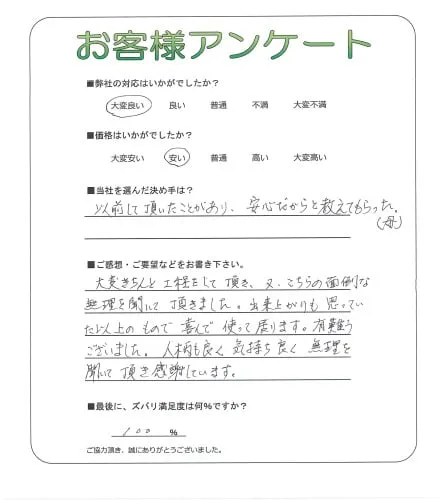 お客様アンケート
■弊社の対応はいかがでしたか?
大変良い 良い 普通 不満 大変不満
■価格はいかがでしたか?
大変安い 安い 普通 高い 大変高い
■当社を選んだ決め手は?
以前して頂いたことがあり、安心だからと教えてもらった。
(母)
■ご感想・ご要望などをお書き下さい。
大変きちんと工程をして頂き、又、こちらの面倒な
無理を聞いて頂きました。出来上がりも思ってい
た以上のもので喜んで使って居ります。有難う
ございました。人柄も良く気持ち良く無理を
聞いて頂き感謝しています。
■最後に、ズバリ満足度は何%ですか?
100 %
ご協力頂き、誠にありがとうございました。